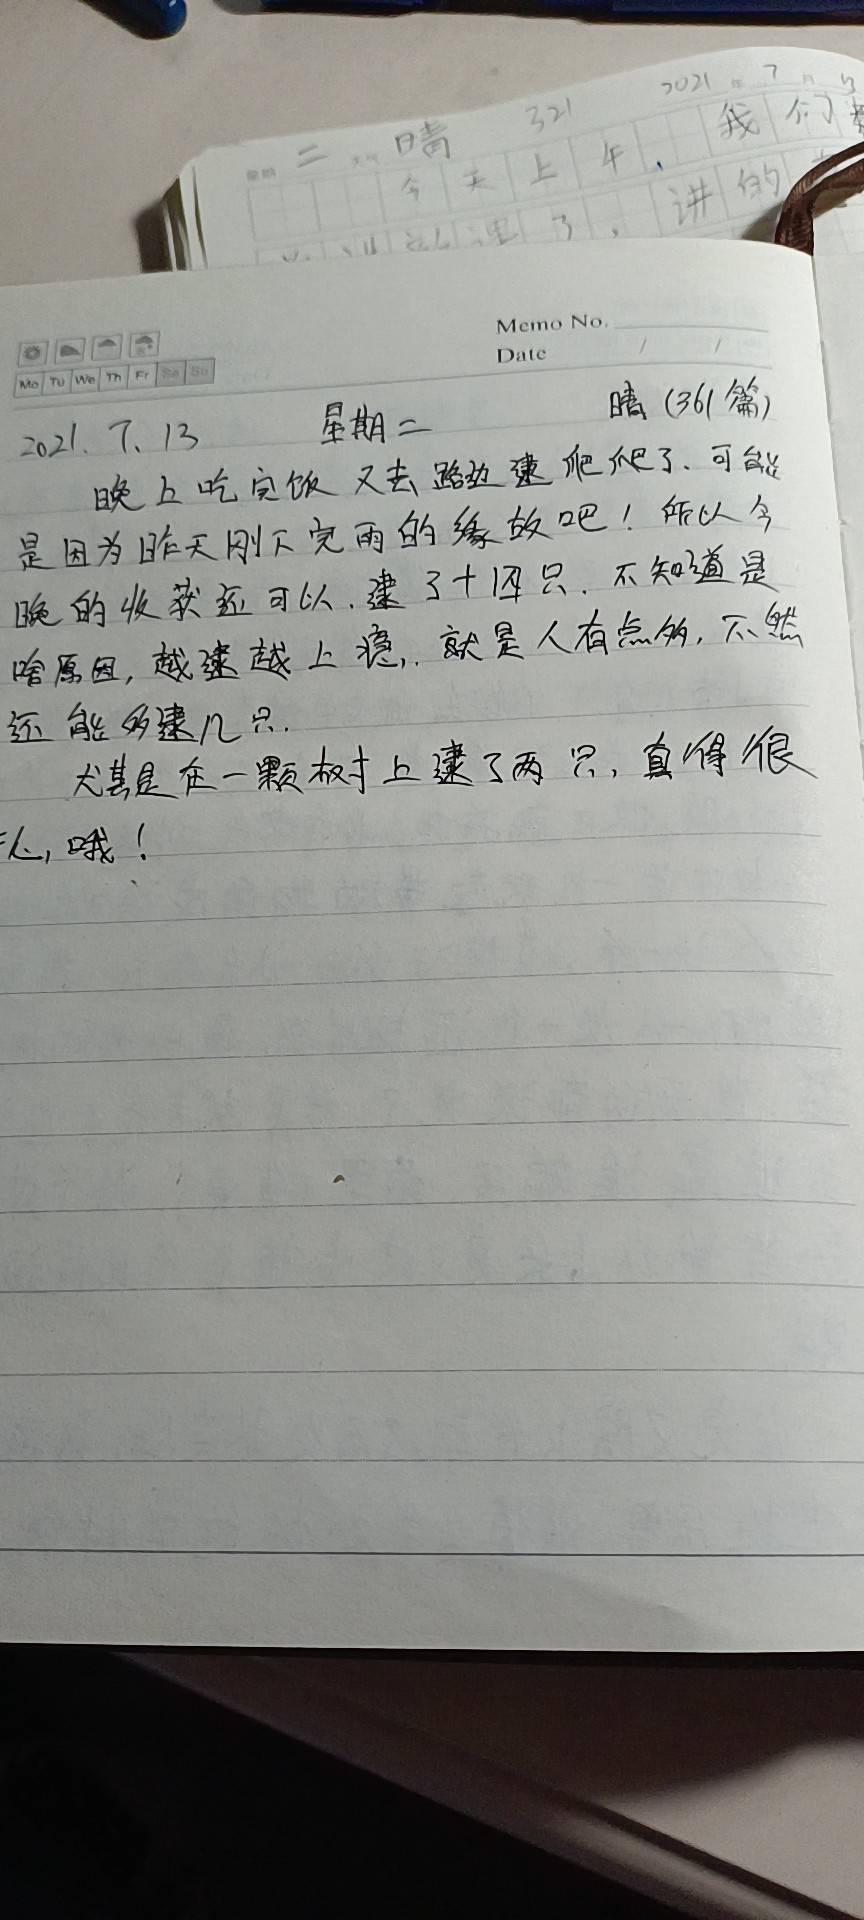 二 晴 321 2021 年 7 月
今天上午,我们
了,讲的
Memo No.
Date / /
Mo Tu We Th Fr Sa Su
2021.7.13 星期二 晴(361篇)
晚上吃完饭又去路边逮爬爬了.可能
是因为昨天刚下完雨的缘故吧!所以今
晚的收获还可以.逮了十四只.不知道是
啥原因,越逮越上瘾,.就是人有点多,不然
还能多逮几只.
尤其是在一颗树上逮了两只,真得很
心,哦!